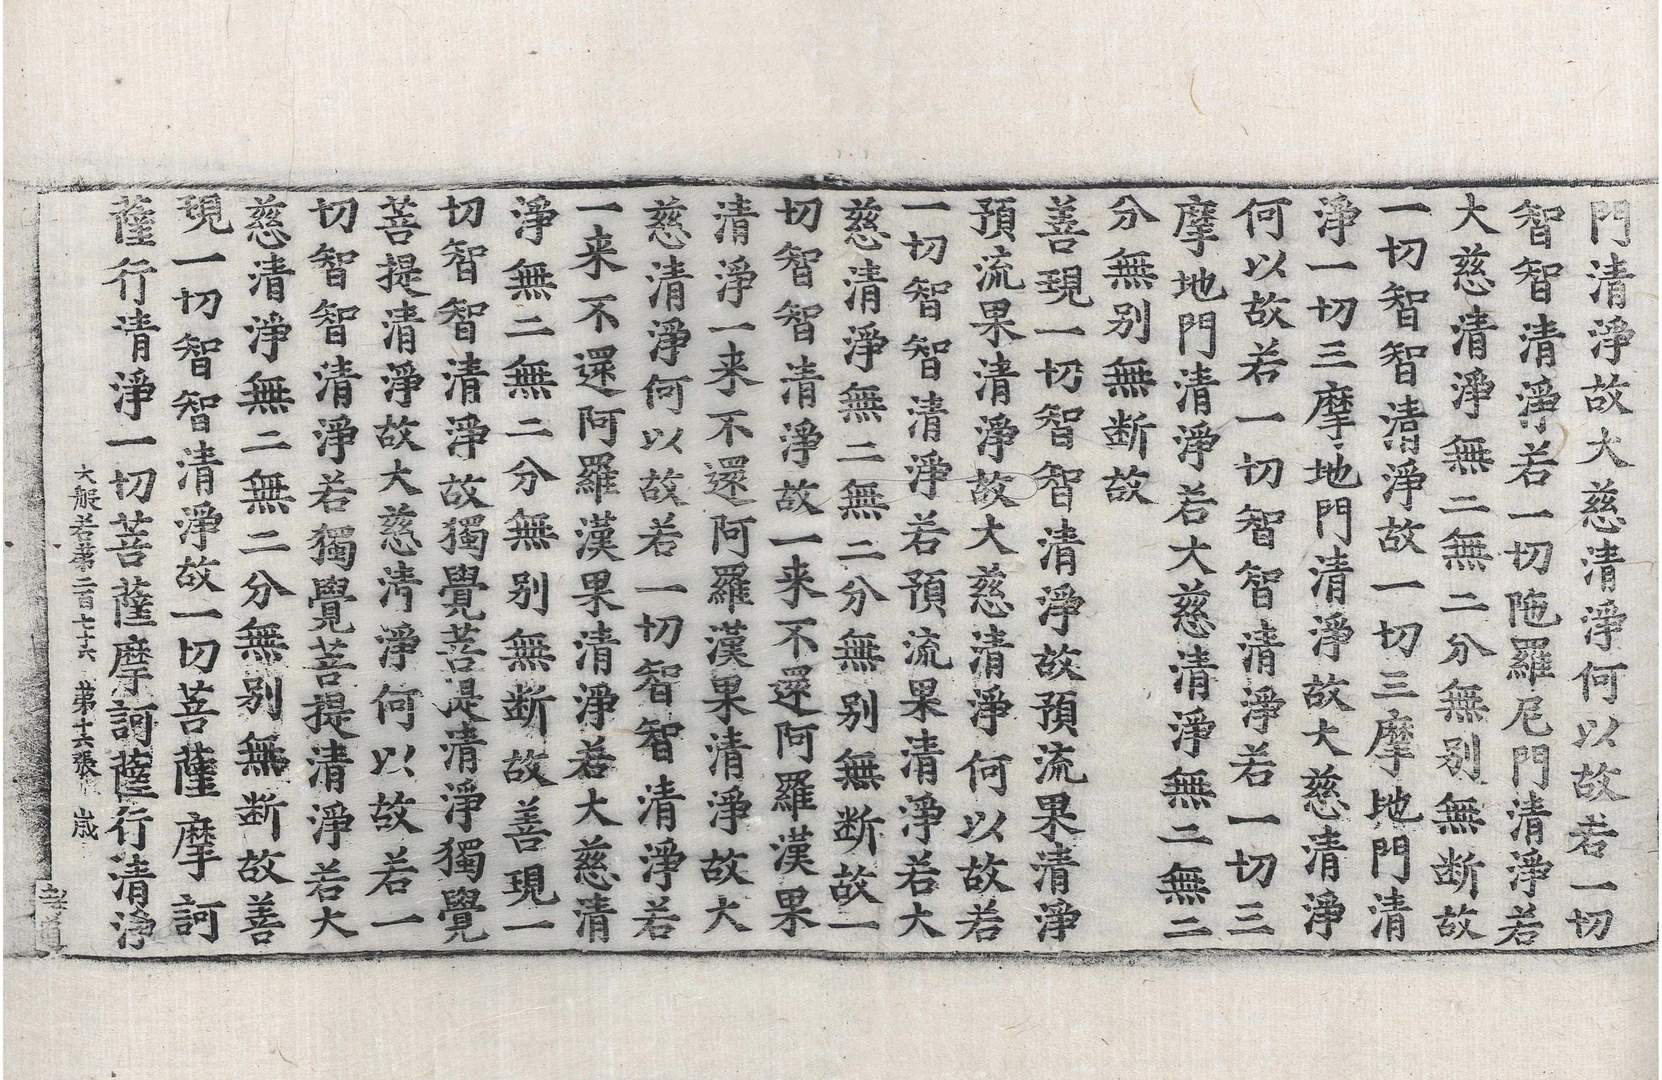 門清淨故大慈清淨何以故若一切
智智清淨若一切陁羅尼門清淨若
大慈清淨無二無二分無别無断故
一切智智清淨故一切三摩地門清
淨一切三摩地門清淨故大慈清淨
何以故若一切智智清淨若一切三
摩地門清淨若大慈清淨無二無二
分無别無断故
善現一切智智清淨故預流果清淨
預流果清淨故大慈清淨何以故若
一切智智清淨若預流果清淨若大
慈清淨無二無二分無别無断故一
切智智清淨故一来不還阿羅漢果
清淨一来不還阿羅漢果清淨故大
慈清淨何以故若一切智智清淨若
一来不還阿羅漢果清淨若大慈清
淨無二無二分無别無断故善現一
切智智清淨故獨覺菩提清淨獨覺
菩提清淨故大慈清淨何以故若一
切智智清淨若獨覺菩提清淨若大
慈清淨無二無二分無别無断故善
現一切智智清淨故一切菩薩摩訶
薩行清淨一切菩薩摩訶薩行清淨
大般若第二百七十六 第十六張 歲